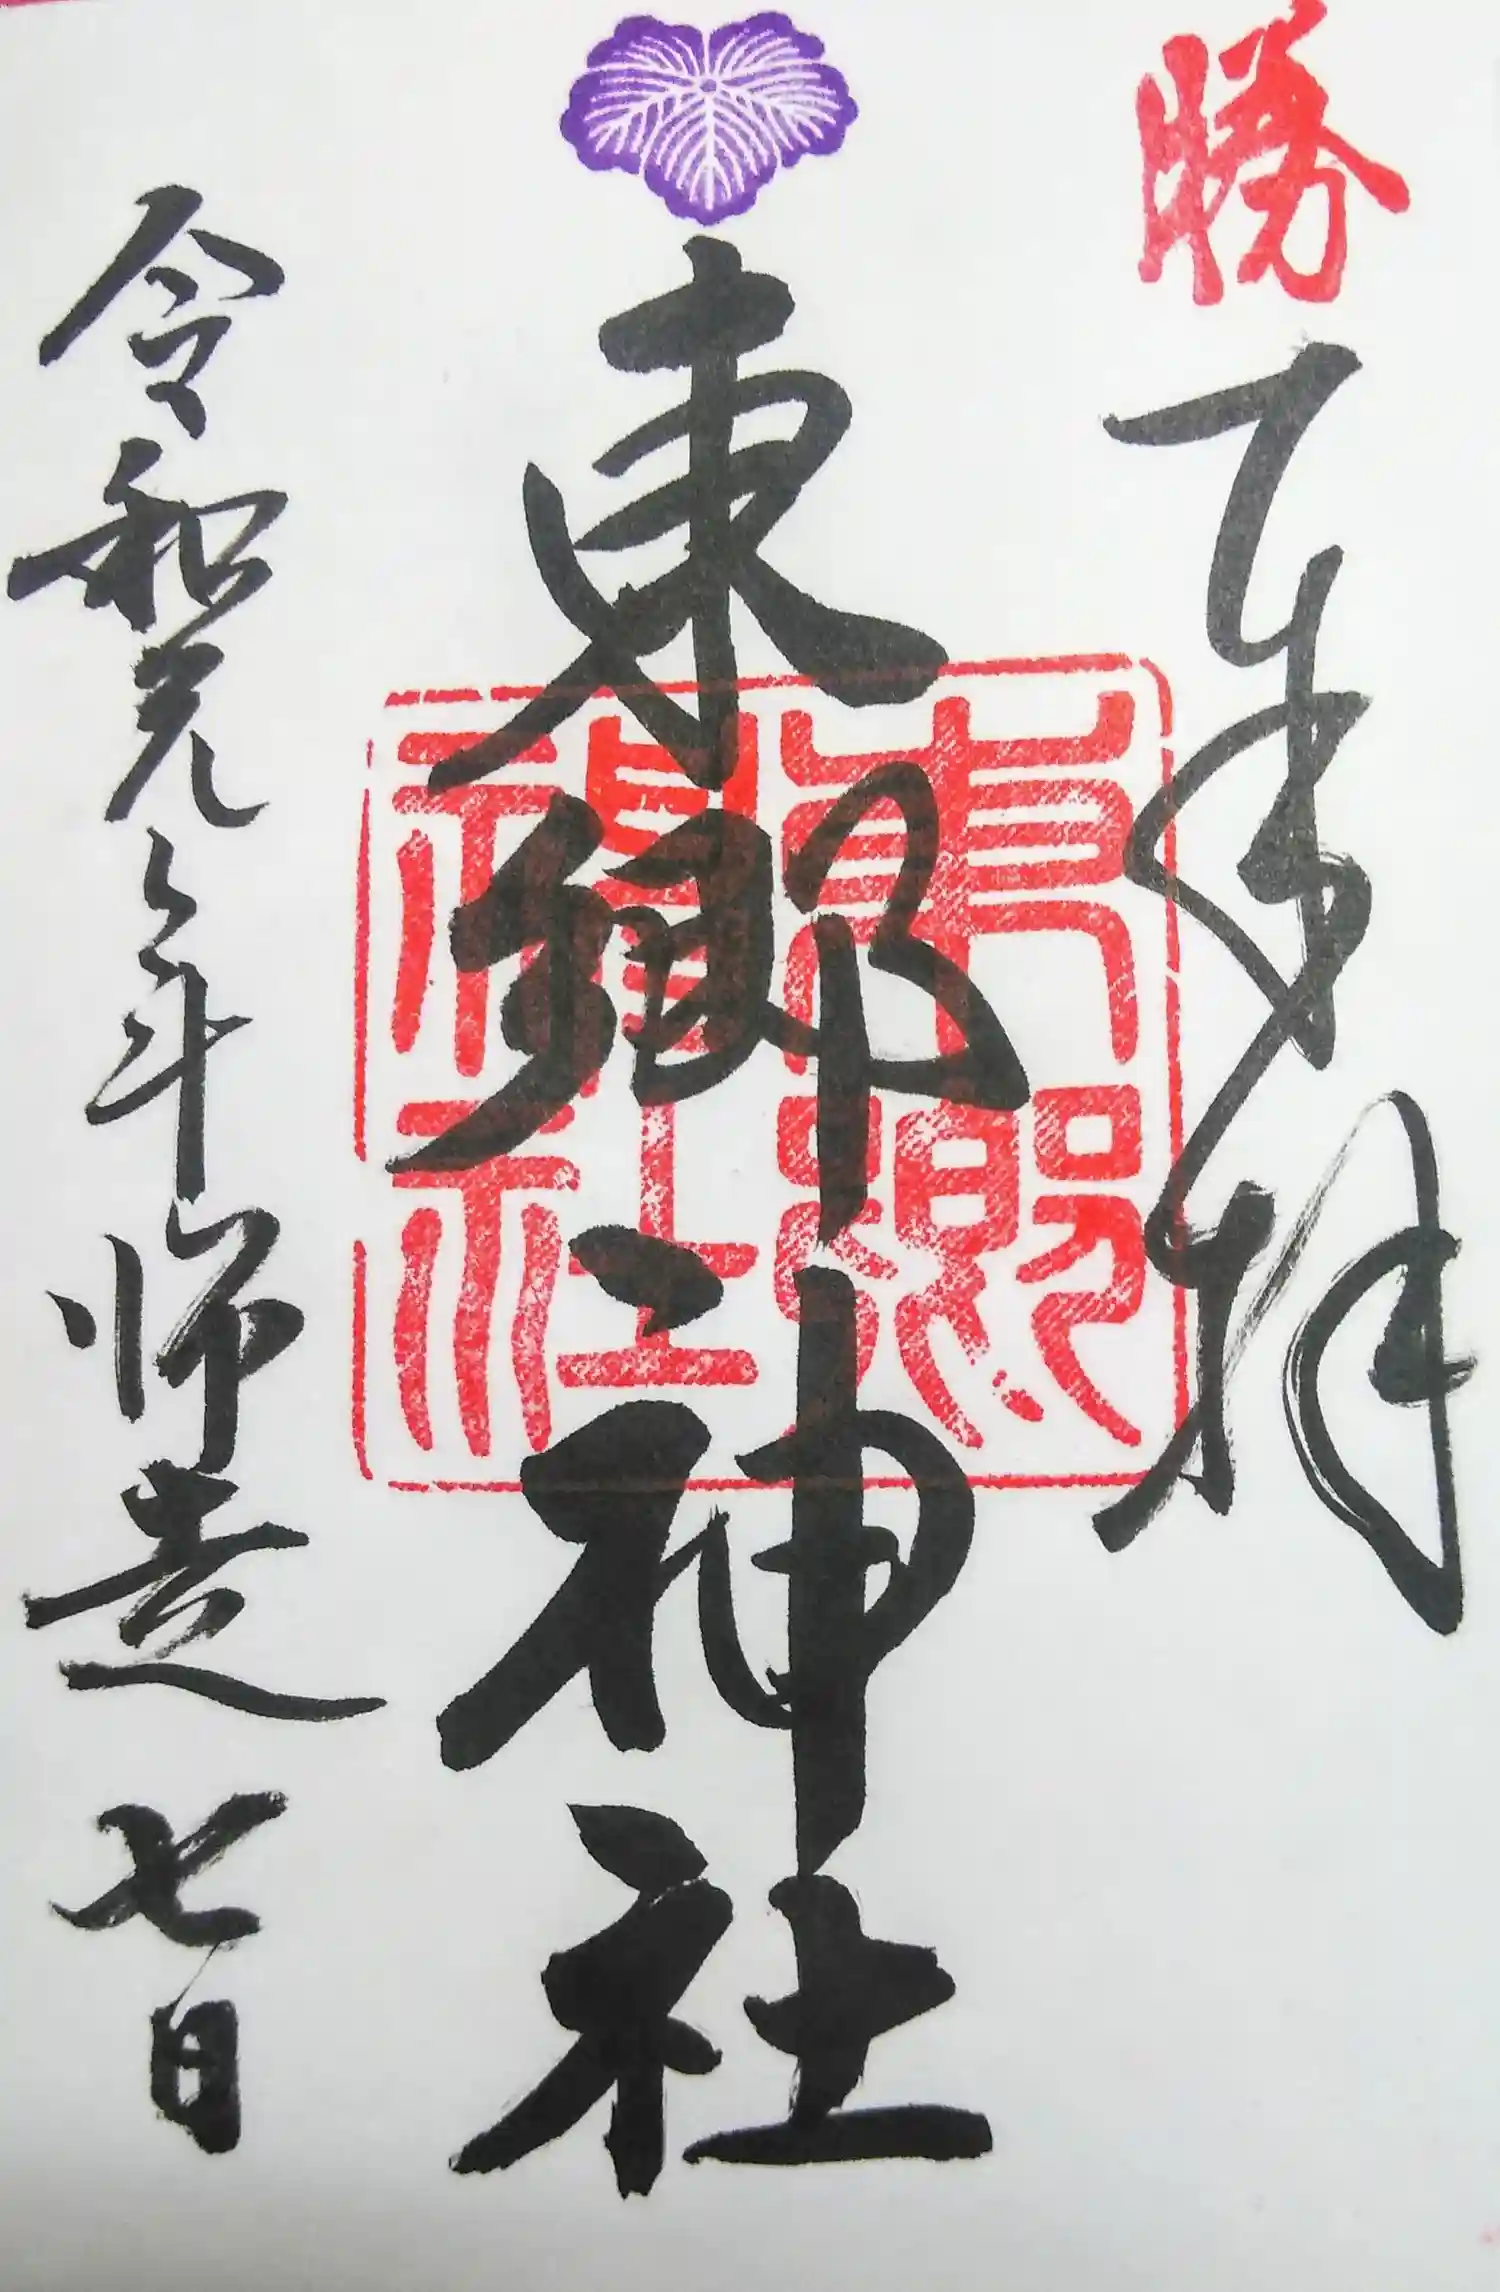 勝
奉拝
東郷神社
東郷神社
令和元年師走七日